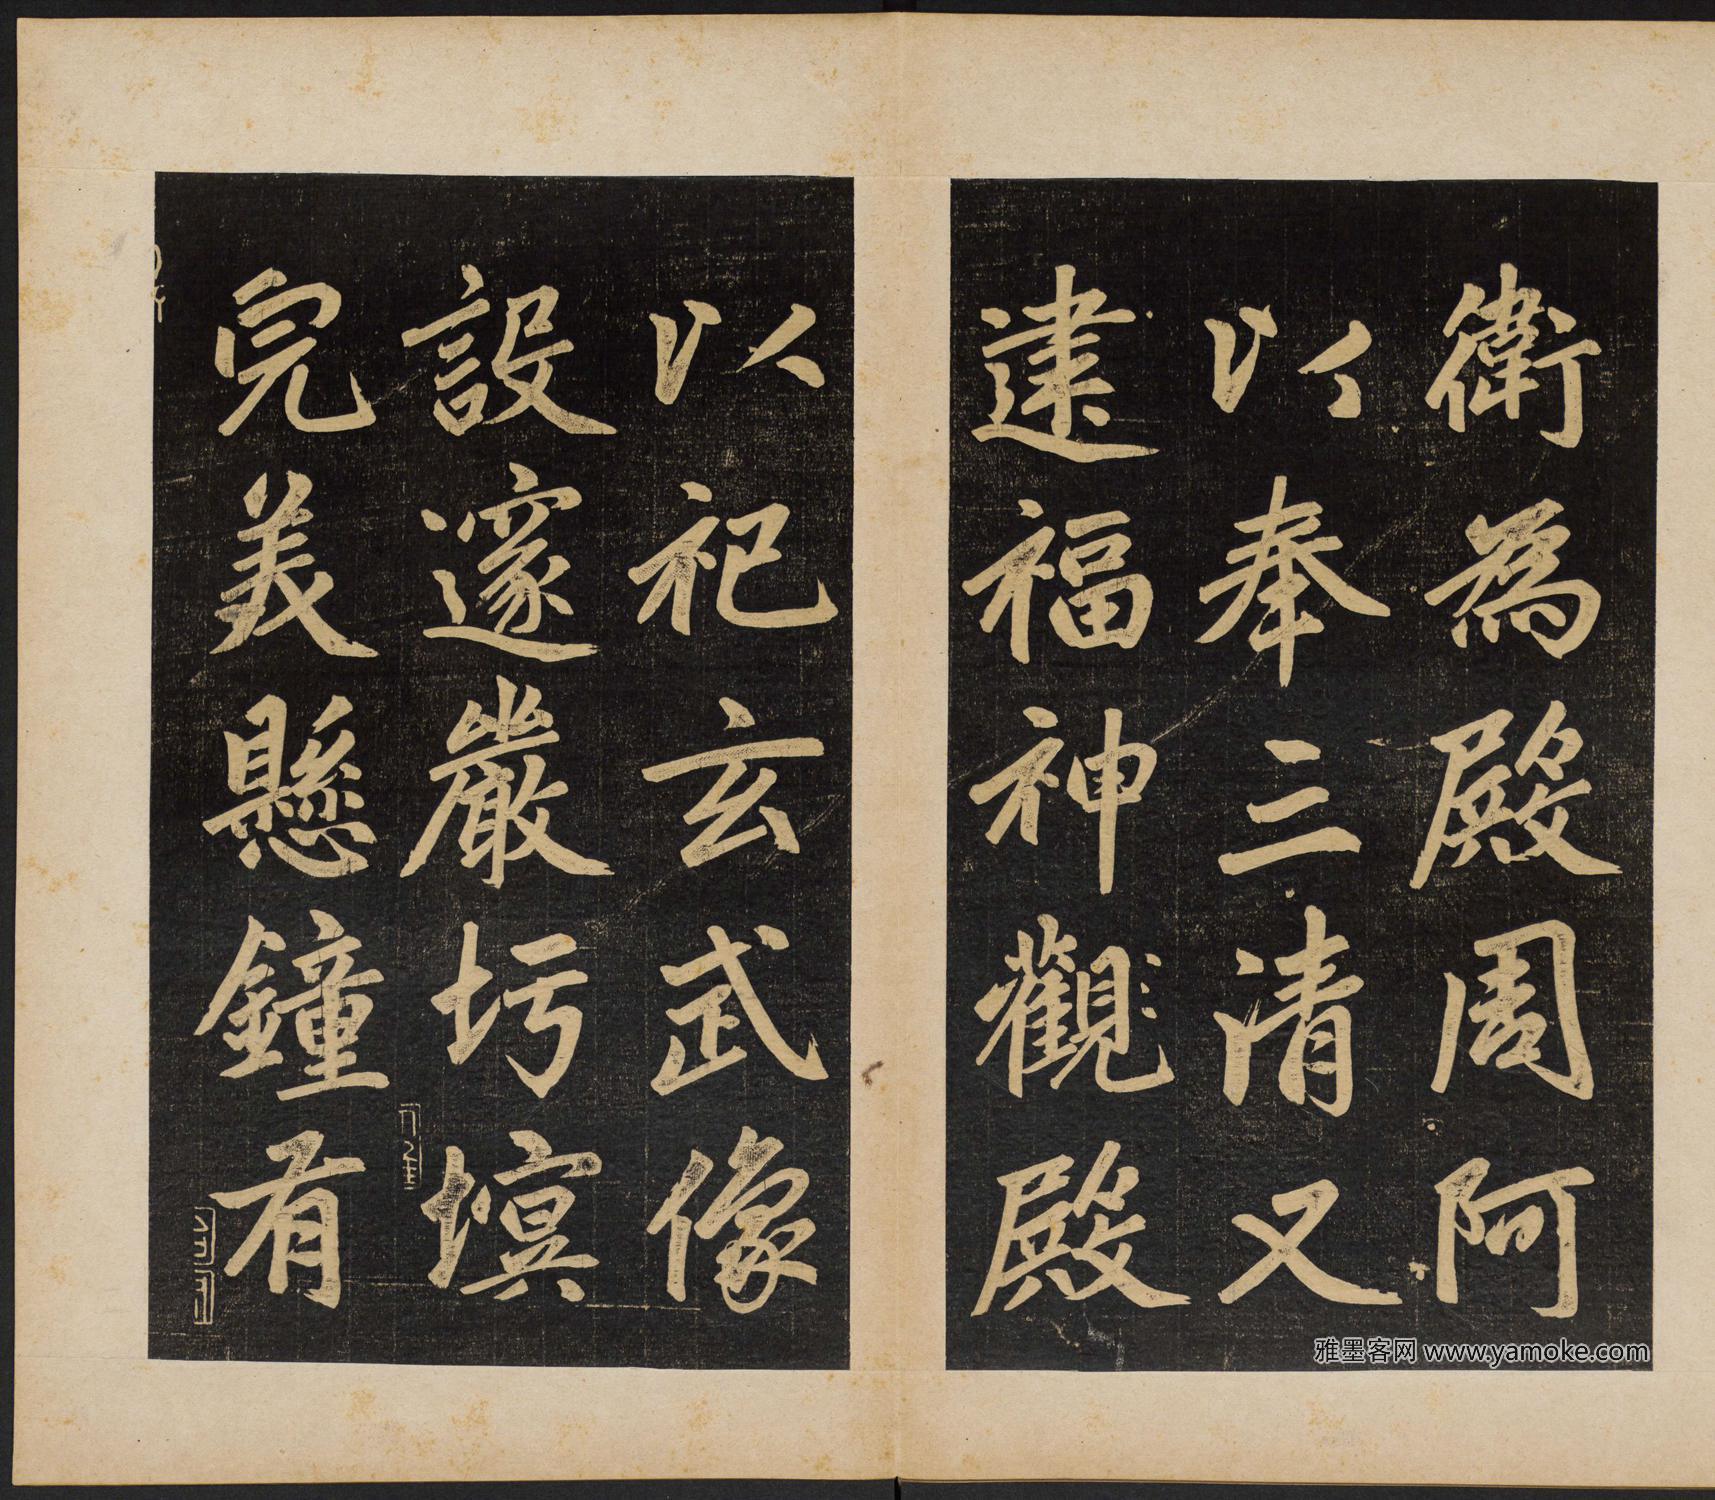 衛為殿周阿
以奉三清又
建福神觀殿
以祀玄武像
設邃嚴圬塓
完美懸鐘有
雅墨客网 www.yamoke.com